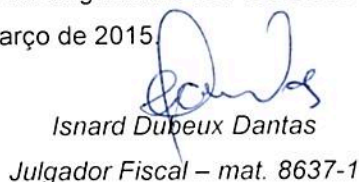 arço de 2015.
Isnard Dubeux Dantas
Julgador Fiscal – mat. 8637-1